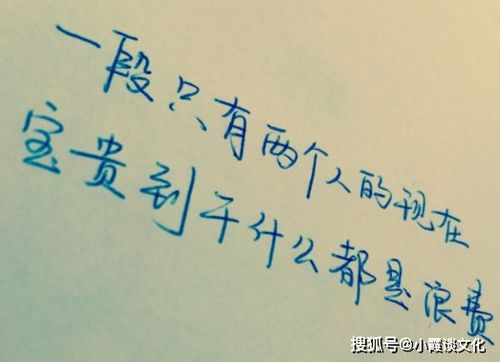 一段只有两个人的现在
宝贵到干什么都是浪费
搜狐号@小霞谈文化